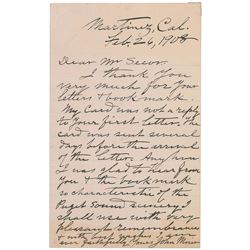 Martinez, Cal.
Feb, 26, 1908
Dear Mr
I thank you
very much for your
letters & bookmark.
My card was not a reply
to your first letter. The
card was sent several
days before the arrival
of the letter. Anyhow
I was glad to hear from
you & the bookmark
so characteristic of the
Puget Sound scenery I
shall use with very
pleasant remembrances
& with best wishes I am
ever faithfully yours John Muir